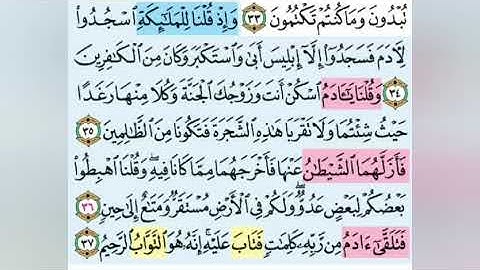 تُبْدُونَ وَمَا كُنتُمْ تَكْتُمُونَ ٣٣ وَإِذْ قُلْنَا لِلْمَلَٰٓئِكَةِ ٱسْجُدُوا۟
لِءَادَمَ فَسَجَدُوٓا۟ إِلَّآ إِبْلِيسَ أَبَىٰ وَٱسْتَكْبَرَ وَكَانَ مِنَ ٱلْكَٰفِرِينَ
٣٤ وَقُلْنَا يَٰٓـَٔادَمُ ٱسْكُنْ أَنتَ وَزَوْجُكَ ٱلْجَنَّةَ وَكُلَا مِنْهَا رَغَدًا
حَيْثُ شِئْتُمَا وَلَا تَقْرَبَا هَٰذِهِ ٱلشَّجَرَةَ فَتَكُونَا مِنَ ٱلظَّٰلِمِينَ ٣٥
فَأَزَلَّهُمَا ٱلشَّيْطَٰنُ عَنْهَا فَأَخْرَجَهُمَا مِمَّا كَانَا فِيهِ ۖ وَقُلْنَا ٱهْبِطُوا۟
بَعْضُكُمْ لِبَعْضٍ عَدُوٌّ ۖ وَلَكُمْ فِى ٱلْأَرْضِ مُسْتَقَرٌّ وَمَتَٰعٌ إِلَىٰ حِينٍ ٣٦
فَتَلَقَّىٰٓ ءَادَمُ مِن رَّبِّهِۦ كَلِمَٰتٍ فَتَابَ عَلَيْهِ ۚ إِنَّهُۥ هُوَ ٱلتَّوَّابُ ٱلرَّحِيمُ ٣٧